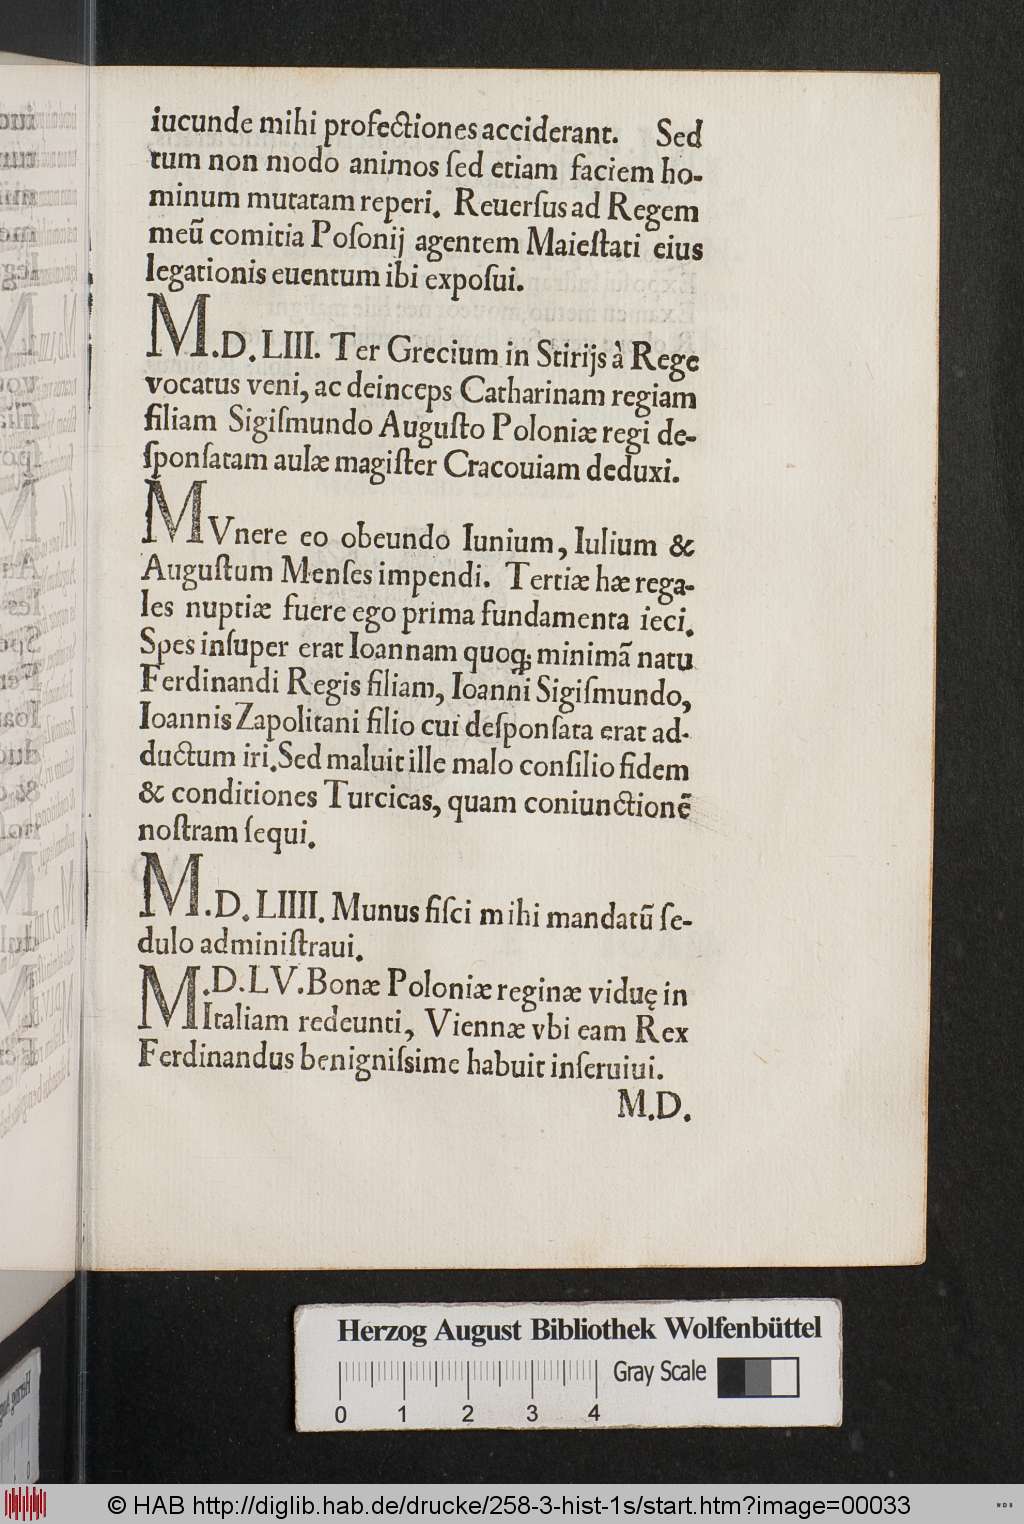 iucunde mihi profectiones acciderant. Sed
tum non modo animos ſed etiam faciem ho-
minum mutatam reperi. Reuerſus ad Regem
meũ comitia Poſonij agentem Maieſtati eius
legationis euentum ibi expoſui.
M.D.LIII. Ter Grecium in Stirijs à Rege
vocatus veni, ac deinceps Catharinam regiam
filiam Sigiſmundo Auguſto Poloniæ regi de-
ſponſatam aulæ magiſter Cracouiam deduxi.
MVnere eo obeundo Iunium, Iulium &
Auguſtum Menſes impendi. Tertiæ hæ rega-
les nuptiæ fuere ego prima fundamenta ieci.
Spes inſuper erat Ioannam quoq; minimã natu
Ferdinandi Regis filiam, Ioanni Sigiſmundo,
Ioannis Zapolitani filio cui deſponſata erat ad-
ductum iri. Sed maluit ille malo conſilio fidem
& conditiones Turcicas, quam coniunctionẽ
noſtram ſequi.
M.D.LIIII. Munus fiſci mihi mandatũ ſe-
dulo adminiſtraui.
M.D.LV. Bonæ Poloniæ reginæ viduę in
Italiam redeunti, Viennæ vbi eam Rex
Ferdinandus benigniſsime habuit inſeruiui.
M.D.
Herzog August Bibliothek Wolfenbüttel
Gray Scale
0 1 2 3 4
© HAB http://diglib.hab.de/drucke/258-3-hist-1s/start.htm?image=00033